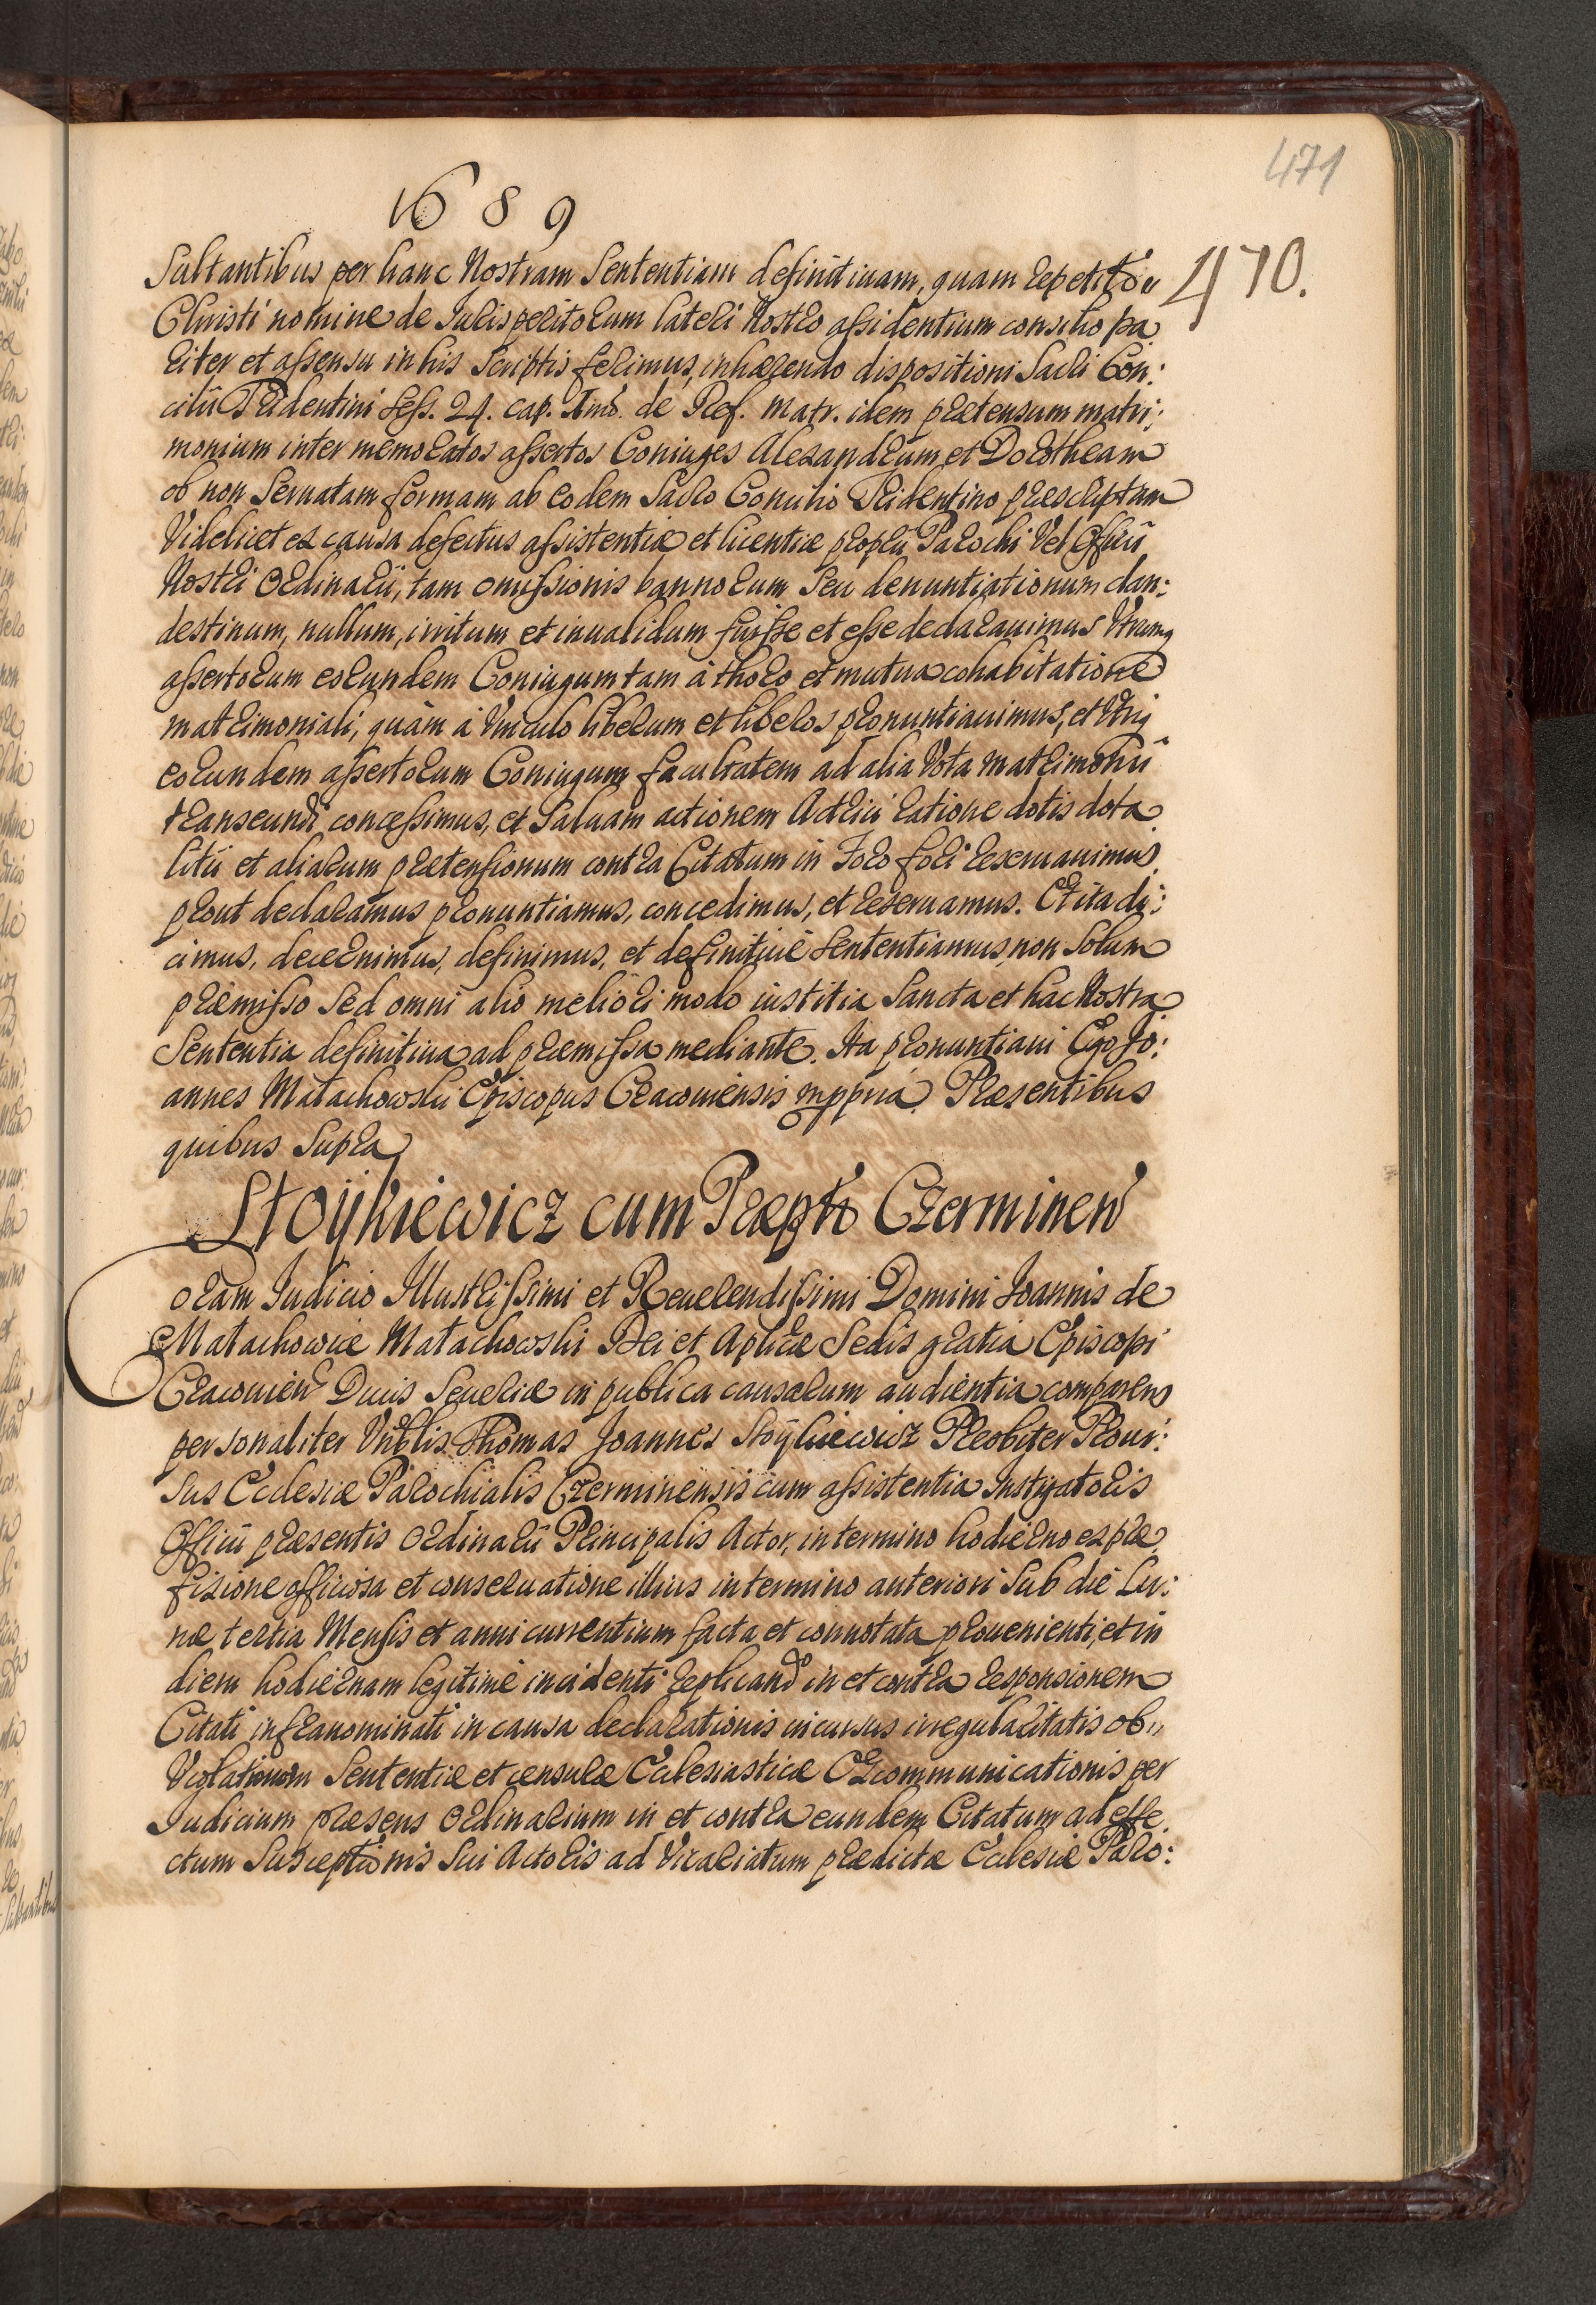 471
1689
470.
Sultantibus per hanc Nostram Sententiam definitiuam, quam repetito
Christi nomine de Jurisperitorum lateri Nostro assidentium consilio pa
riter et assensu in his scriptis ferimus, inhærendo dispositioni Sacri Con:
cilii Tridentini Sess. 24. cap. Imo. de Ref. Matr. idem prætensum matri:
monium inter memoratos assertos Coniuges Alexandrum et Dorotheam
ob non Seruatam formam ab eodem Sacro Concilio Tridentino præscriptam
Videlicet ex causa defectus assistentiæ et licentiæ proprii Parochi Vel Officii
Nostri Ordinarii, tam omissionis bannorum Seu denuntiationum clan:
destinum, nullum, irritum et inualidum fuisse et esse declarauimus Utrumq
assertorum eorundem Coniugum tam à thoro et mutua cohabitatione
matrimoniali, quàm à Vinculo liberum et liberos pronuntiauimus, et Utriq
eorundem assertorum Coniugum facultatem ad alia Vota matrimonii
transeundi concessimus, et Saluam actionem Actrici ratione dotis dota
litii et aliarum prætensionum contra Citatum in Foro fori reseruauimus
prout declaramus pronuntiamus, concedimus, et reseruamus. Et ita di:
cimus, decernimus, definimus, et definitiuè Sententiamus, non Solum
præmisso Sed omni alio meliori modo iustitia Sancta et hac Nostra
Sententia definitiua ad præmissa mediante. Ita pronuntiaui Ego Jo:
annes Małachowski Episcopus Cracouiensis mppria. Præsentibus
quibus Supra
Stoÿkiewicz cum Præpto Czerminen
Coram Judicio Illustrissimi et Reuerendissimi Domini Joannis de
Małachowice Małachowski Dei et Aplicæ Sedis gratia Episcopi
Cracouien Ducis Seueriæ in publica causarum audientia comparens
personaliter Vnblis Thomas Joannes Stoÿkiewicz Presbiter Proui:
sus Ecclesiæ Parochialis Czerminensis cum assistentia Instigatoris
Officii præsentis Ordinarii Principalis Actor, in termino hodierno ex præ
fixione officiosa et conseruatione illius in termino anteriori Sub die Lu:
næ, tertia Mensis et anni currentium facta et connotata prouenienti, et in
diem hodiernam legitimè incidenti replicando in et contra responsionem
Citati infranominati in causa declarationis incursus irregularitatis ob
Violationem Sententiæ et censuræ Ecclesiasticæ Excommunicationis per
Judicium præsens Ordinarium in et contra eundem Citatum ad effe
ctum Susceptionis Sui Actoris ad Vicariatum prædictæ Ecclesiæ Paro: